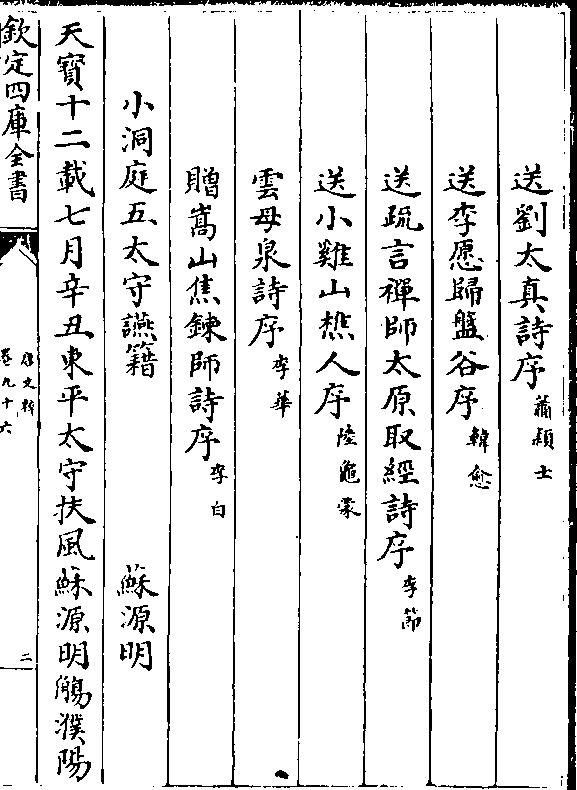 送劉太真詩序 蕭穎士
送李愿歸盤谷序 韓愈
送疏言禪師太原取經詩序 李節
送小雞山樵人序 陸龜蒙
雲母泉詩序 李華
贈嵩山焦鍊師詩序 李白
小洞庭五太守讌籍 蘇源明
天寶十二載七月辛丑東平太守扶風蘇源明觴濮陽
欽定四庫全書
唐文粹
卷九十六
二